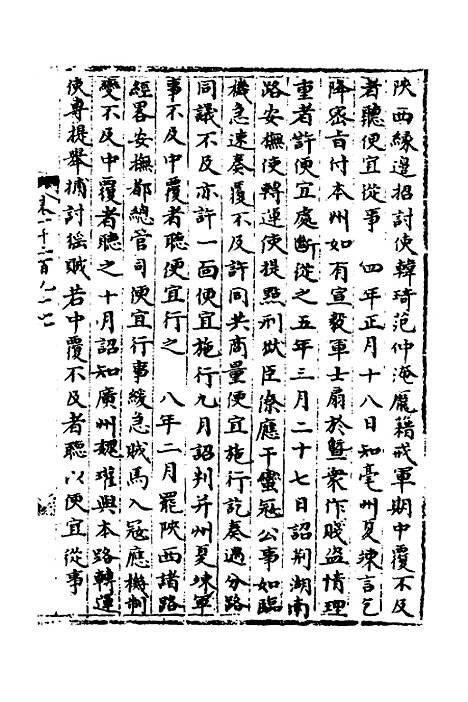 陝西緣邊招討使韓琦范仲淹龐籍或軍期中覆不及
者聽便宜從事　四年正月十八日知亳州夏竦言乞
降宻旨付本州如有宣毅軍士扇於塹衆作賤盜情理
重者許便宜處斷從之五年三月二十七日詔荆湖南
路安撫使轉運使提㸃刑獄臣僚應干蠻冦公事如臨
機急速奏覆不及許同共商量便宜施行訖奏遇分路
同議不及亦許一面便宜施行九月詔判并州夏竦軍
事不及中覆者聽便宜行之　八年二月罷陝西諸路
經畧安撫都總管司便宜行事緩急賊馬入冦應機制
變不及中覆者聽之十月詔知廣州魏瓘與本路轉運
使專提舉捕討猺賊若中覆不及者聽以便宜從事
卷一千二百九十七